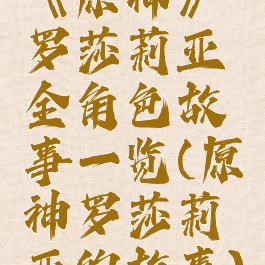 《原神》
罗莎莉亚
全角色故
事一览(原
神罗莎莉
亚的故事)